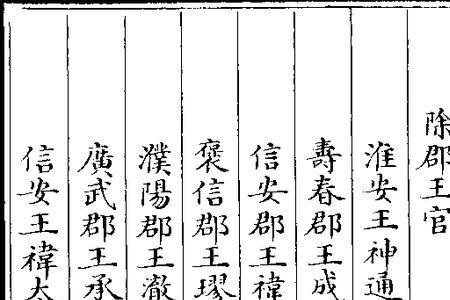 除郡王官
淮安王神通
壽春郡王成
信安郡王禕
褒信郡王璆
濮陽郡王澈
廣武郡王承
信安王禕太